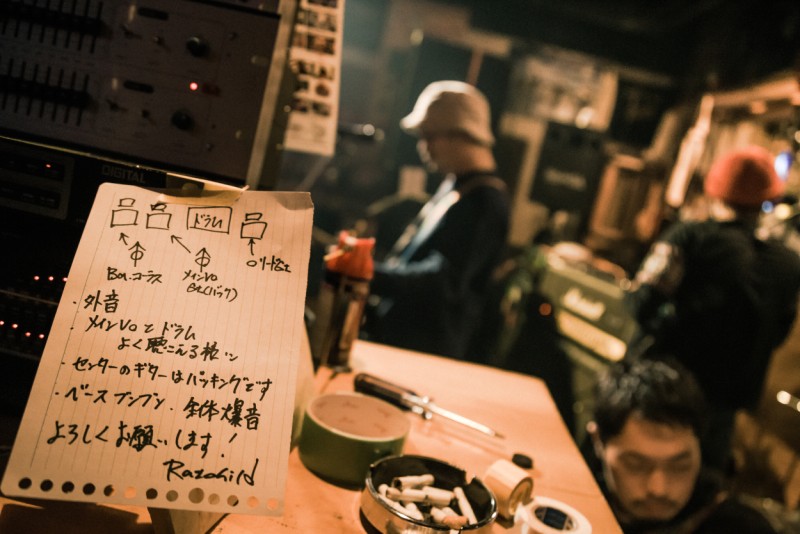 DIGITAL
ドラム
Ba.コーラス
メインVo
Gt(バッキング)
リードGt
・外音
・メインVoとドラム
よく聴こえる様に
・センターのギターはバッキングです
・ベースブンブン・全体爆音
よろしくお願いします!
Marshall